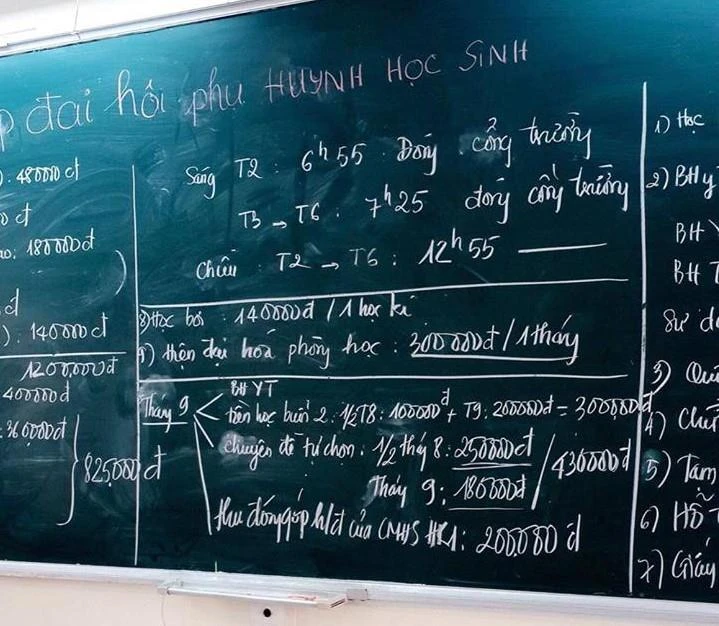 đại hội phụ HUYNH HỌC SINH
: 48000đ
0đ
: 180000đ
đ
) : 140000đ
1200,000đ
400000đ
: 360,000đ
825,000đ
Sáng T2 : 6h55 Đóng cổng trường
T3 → T6 : 7h25 đóng cổng trường
Chiều T2 → T6 : 12h55
8) Học bơi : 140000đ / 1 học kì
9) hiện đại hoá phòng học : 300000đ / 1 tháng
Tháng 9
BHYT
tiền học buổi 2 : 1/2 T8 : 100000đ + T9 : 200000đ = 300,000đ
chuyên đề tự chọn : 1/2 tháng 8 : 250000đ
Tháng 9 : 180000đ / 430000đ
thu đóng góp h/đ của CMHS HK1 : 200,000đ
1) Học
2) BHy
BH Y
BH T
Sử d
3) Quĩ
4)
5) Tạm
6) Hỗ T
7) Giấy